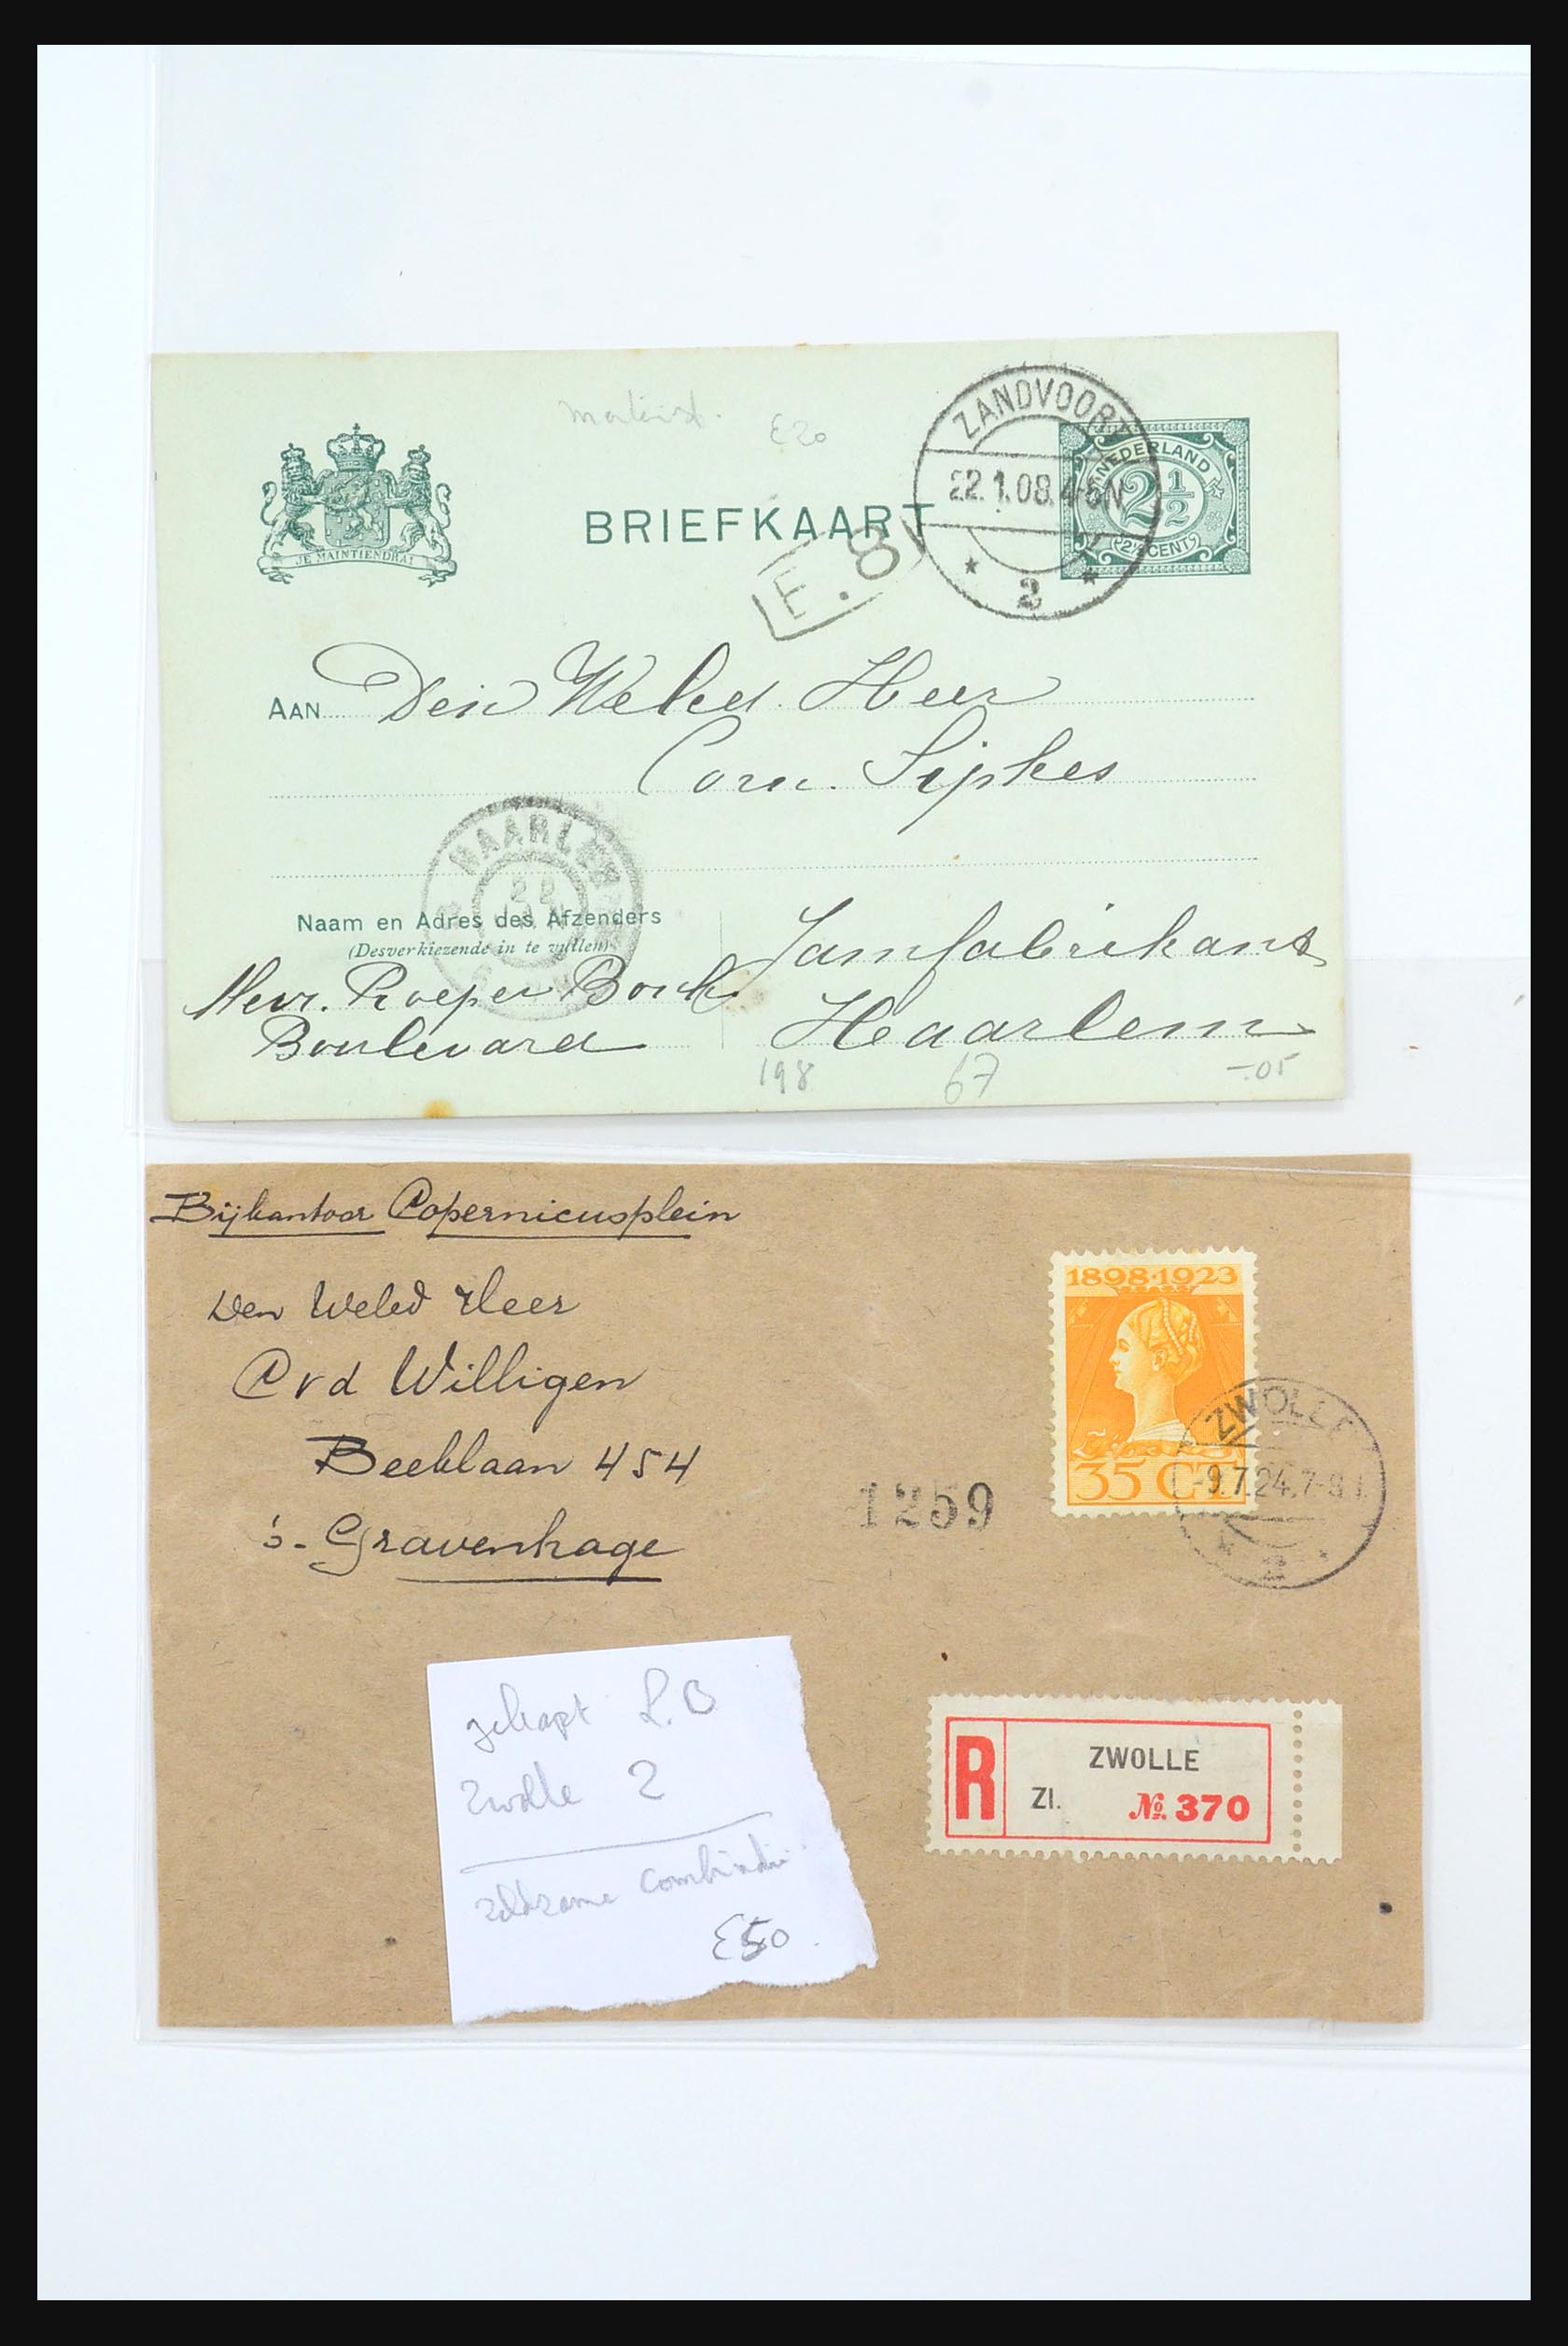 E20
ZANDVOORT
22.1.08.4-5N
2
NEDERLAND
2 1/2
2½ CENT
JE MAINTIENDRAI
BRIEFKAART
F.8
AAN Den Weled. Heer
Corn. Sijpkes
HAARLEM
22
Naam en Adres des Afzenders
(Desverkiezende in te vullen)
Jamfabrikant
Mevr. Roeper Bosch
Haarlem
Boulevard
198 67 -.05
Bijkantoor Copernicusplein
Den Weled Heer
C vd Willigen
Beeklaan 454
's-Gravenhage
1898·1923
35 CT
ZWOLLE
-9.7.24.7-8V.
2
1259
R
ZWOLLE
Zl. No. 370
gekapt L.B
Zwolle 2
zeldzame combinatie
E50.